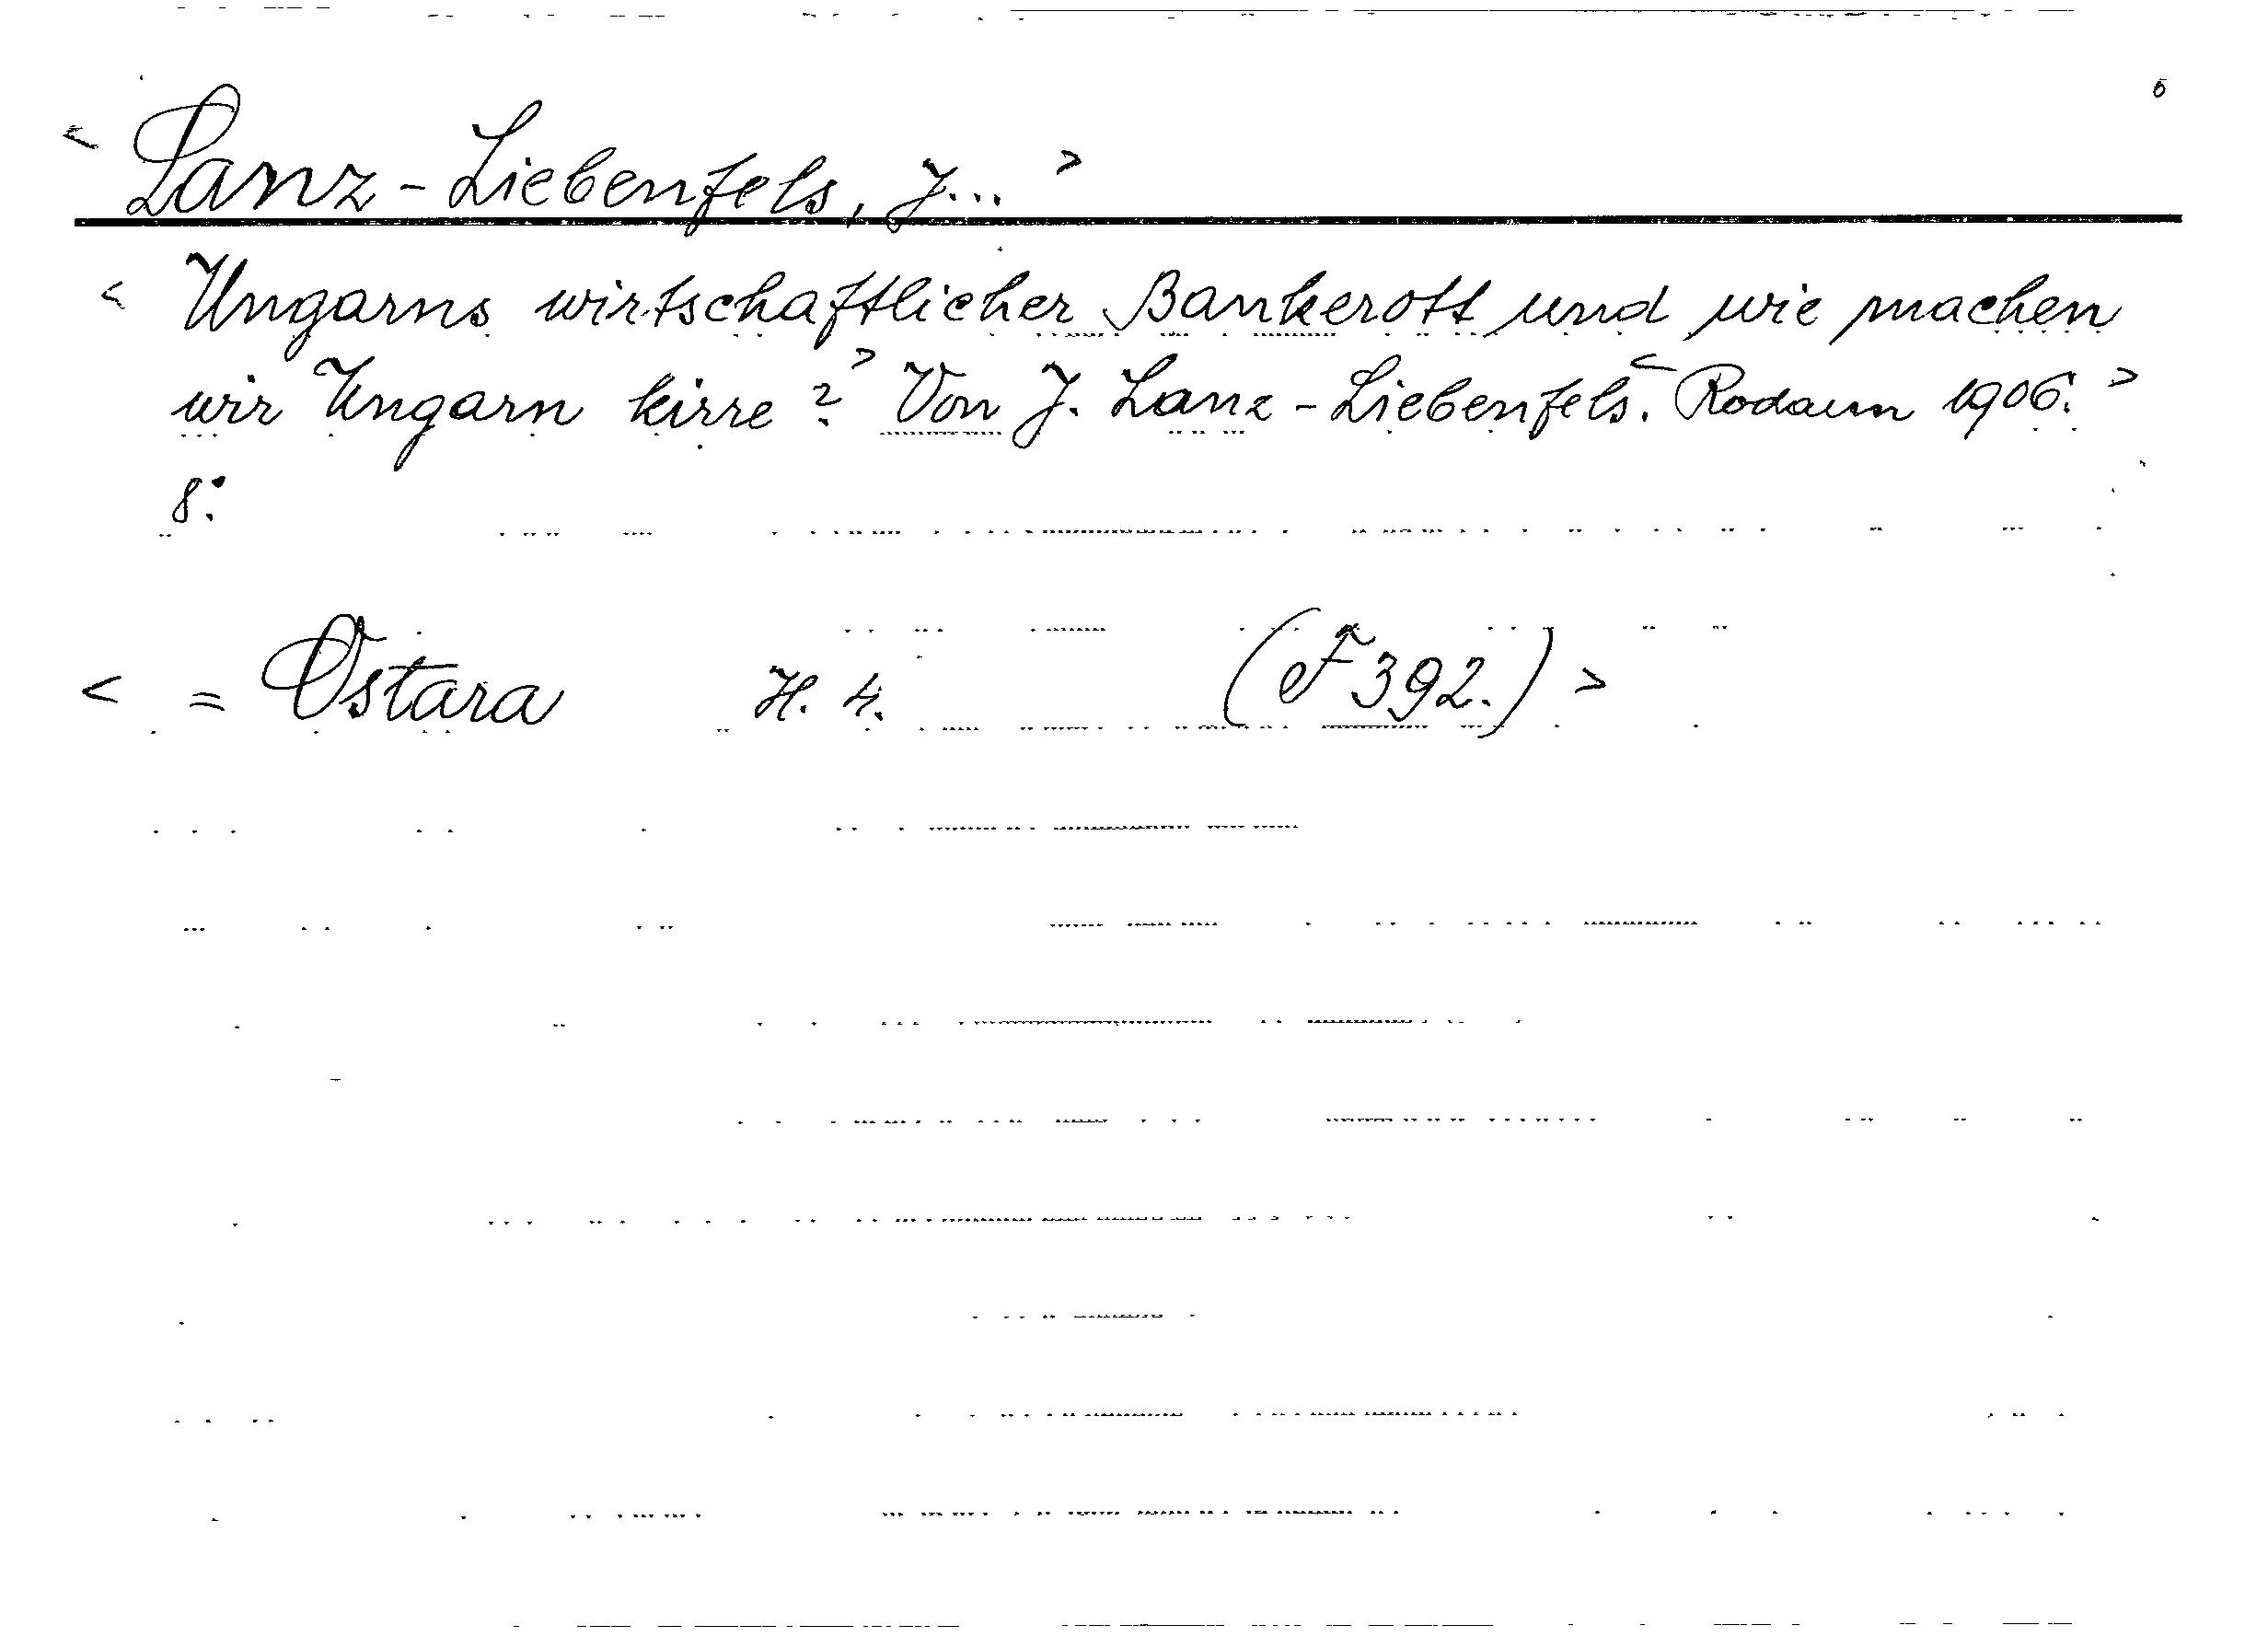 < Lanz-Liebenfels, J... >
< Ungarns wirtschaftlicher Bankerott und wie machen
wir Ungarn kirre ? > Von J. Lanz-Liebenfels. < Rodaun 1906. >
8:
< = Ostara H. 4. (F 392.) >